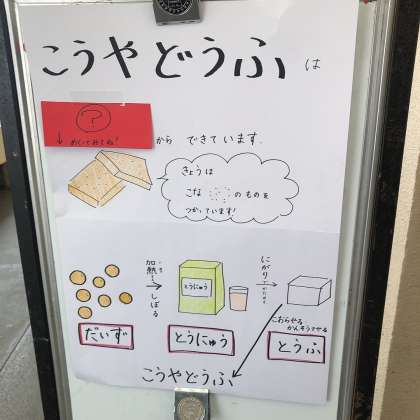 こうやどうふは
?
↓めくってみてね!
から できています。
きょうは
こな のものを
つかっています!
加熱し しぼる
にがりでかためる
とうにゅう
こおらせる
かんそうさせる
だいず
とうにゅう
とうふ
こうやどうふ